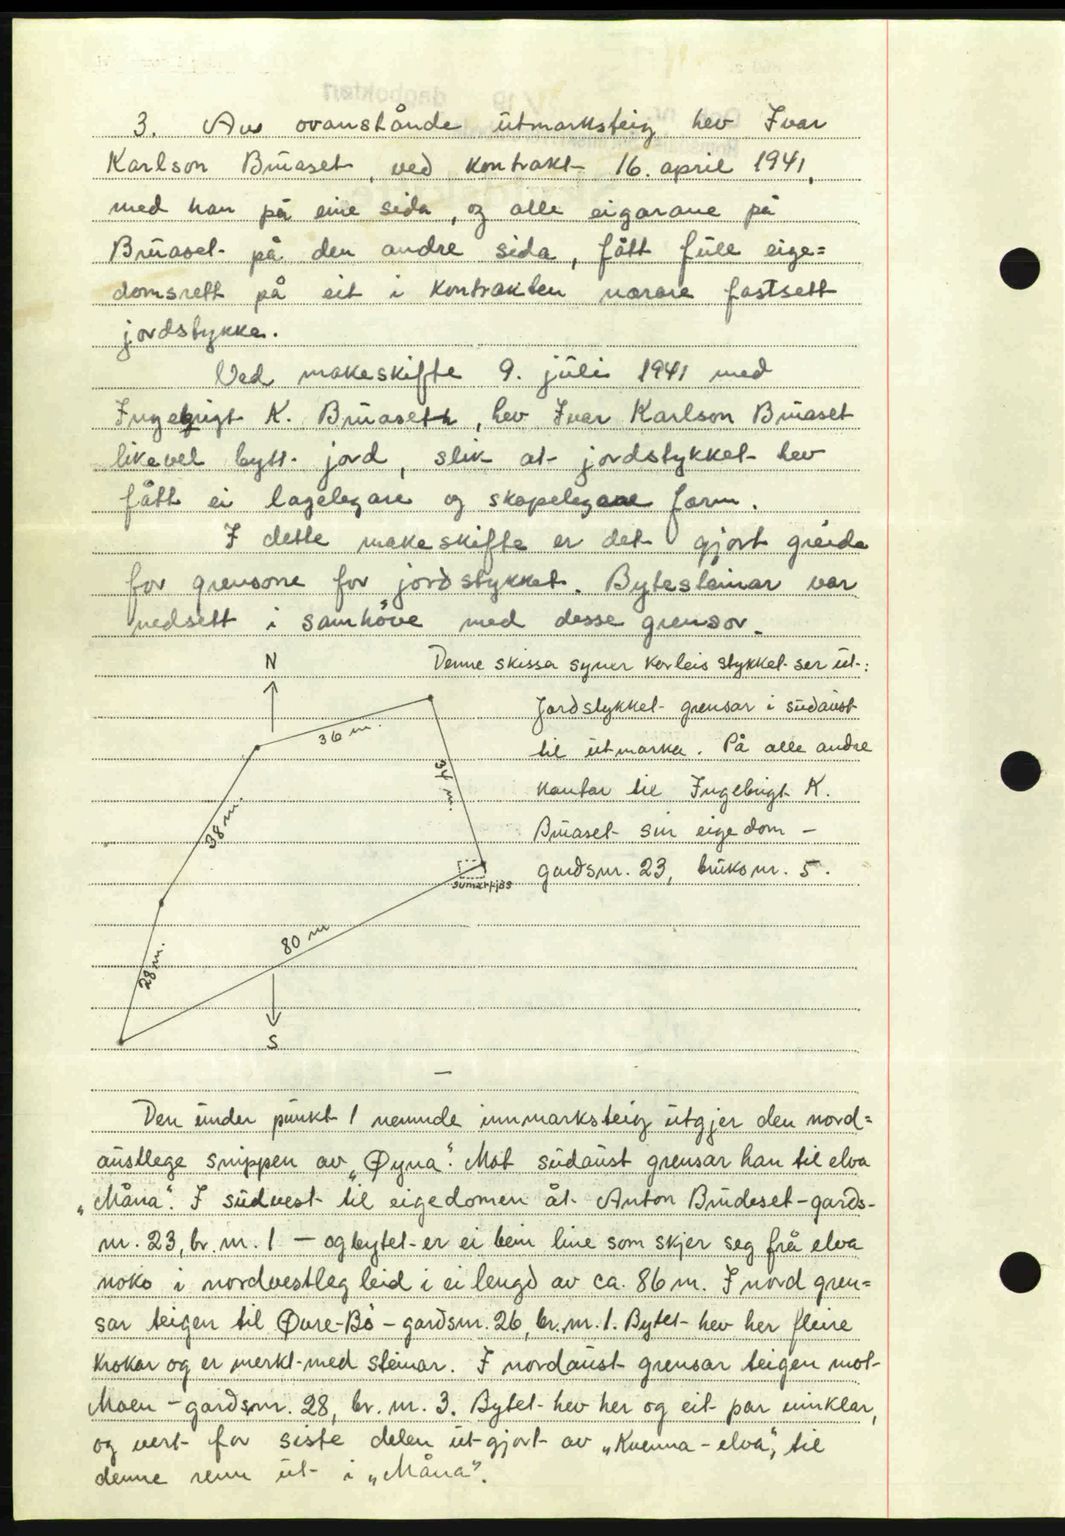 3. Av ovanstånde utmarksteig hev Ivar
Karlson Brüaset, ved kontrakt 16. april 1941,
med han på eine sida, og alle eigarane på
Brüaset på den andre sida, fått fulle eige=
domsrett på eit i kontrakten nærare fastsett
jordstykke.
Ved makeskifte 9. juli 1941 med
Ingebrigt K. Brüaset, hev Ivar Karlson Brüaset
likevel bytt jord, slik at jordstykket hev
fått ei lagelegare og skapelegare form.
I dette makeskifte er det gjort greida
for grensone for jordstykket. Bytesteinar var
nedsett i samhöve med desse grensor.
N
Denne skissa syner korleis stykket ser ut:
Jordstykket grensar i südaust
til utmarka. På alle andre
kantar til Ingebrigt K.
Brüaset sin eigedom -
gardsnr. 23, bruksnr. 5.
36 m.
34 m.
38 m.
sumarfjös
80 m
28 m.
S
Den under punkt 1 nemnde innmarksteig utgjer den nord=
austlege snippen av „Øyna“. Mot südaust grensar han til elva
„Måna“. I südvest til eigedomen åt Anton Brudeset - gards-
nr. 23, br. nr. 1 — og bytet er ei bein line som skjer seg frå elva
noko i nordvestleg leid i ei lengd av ca. 86 m. I nord gren=
sar teigen til Øvre-Bö - gardsnr. 26, br. nr. 1. Bytet hev her fleire
krokar og er merkt med steinar. I nordaust grensar teigen mot
Moen - gardsnr. 28, br. nr. 3. Bytet hev her og eit par vinklar,
og vert for siste delen utgjort av „Kvenna-elva“, til
denne renn ut i „Måna“.